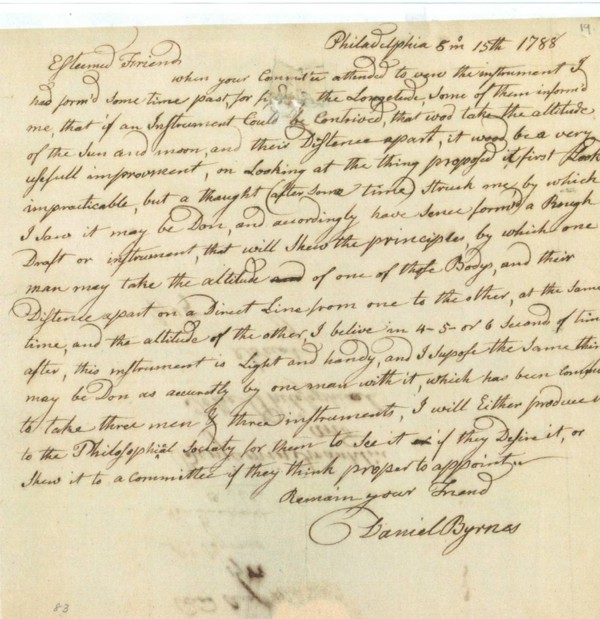 19.
Philadelphia 5 m 15th 1788
Esteemed Friend
when your Committe attended to vew the instrument I
had form'd Some time past, for the Longetude, Some of them inform'd
me, that if an Instrument Could be Contrived, that wod take the altitude
of the Sun and moon, and their Distence apart, it wood be a very
usefull improvment, on Looking at the thing proposed it first Look
impracticable, but a thought (after Some time) Struck me, by which
I Saw it may be Don, and accordingly have Sence form'd a Rough
Draft or instrument, that will Shew the principles, by which one
man may take the altitude of one of those Bodys, and their
Distence apart on a Direct Line from one to the other, at the Same
time, and the altitude of the other, I belive in 4-5- or 6 Second of time
after, this instrument is Light and handy, and I Supose the Same thin
may be Don as accuretly by one man with it, which has been Comm
to take three men & three instruments, I will Either produce
to the Philosophical Society for them to See it if they Desire it, or
Shew it to a Committee if they think proper to appoint
Remain your Friend
Daniel Byrnes
83